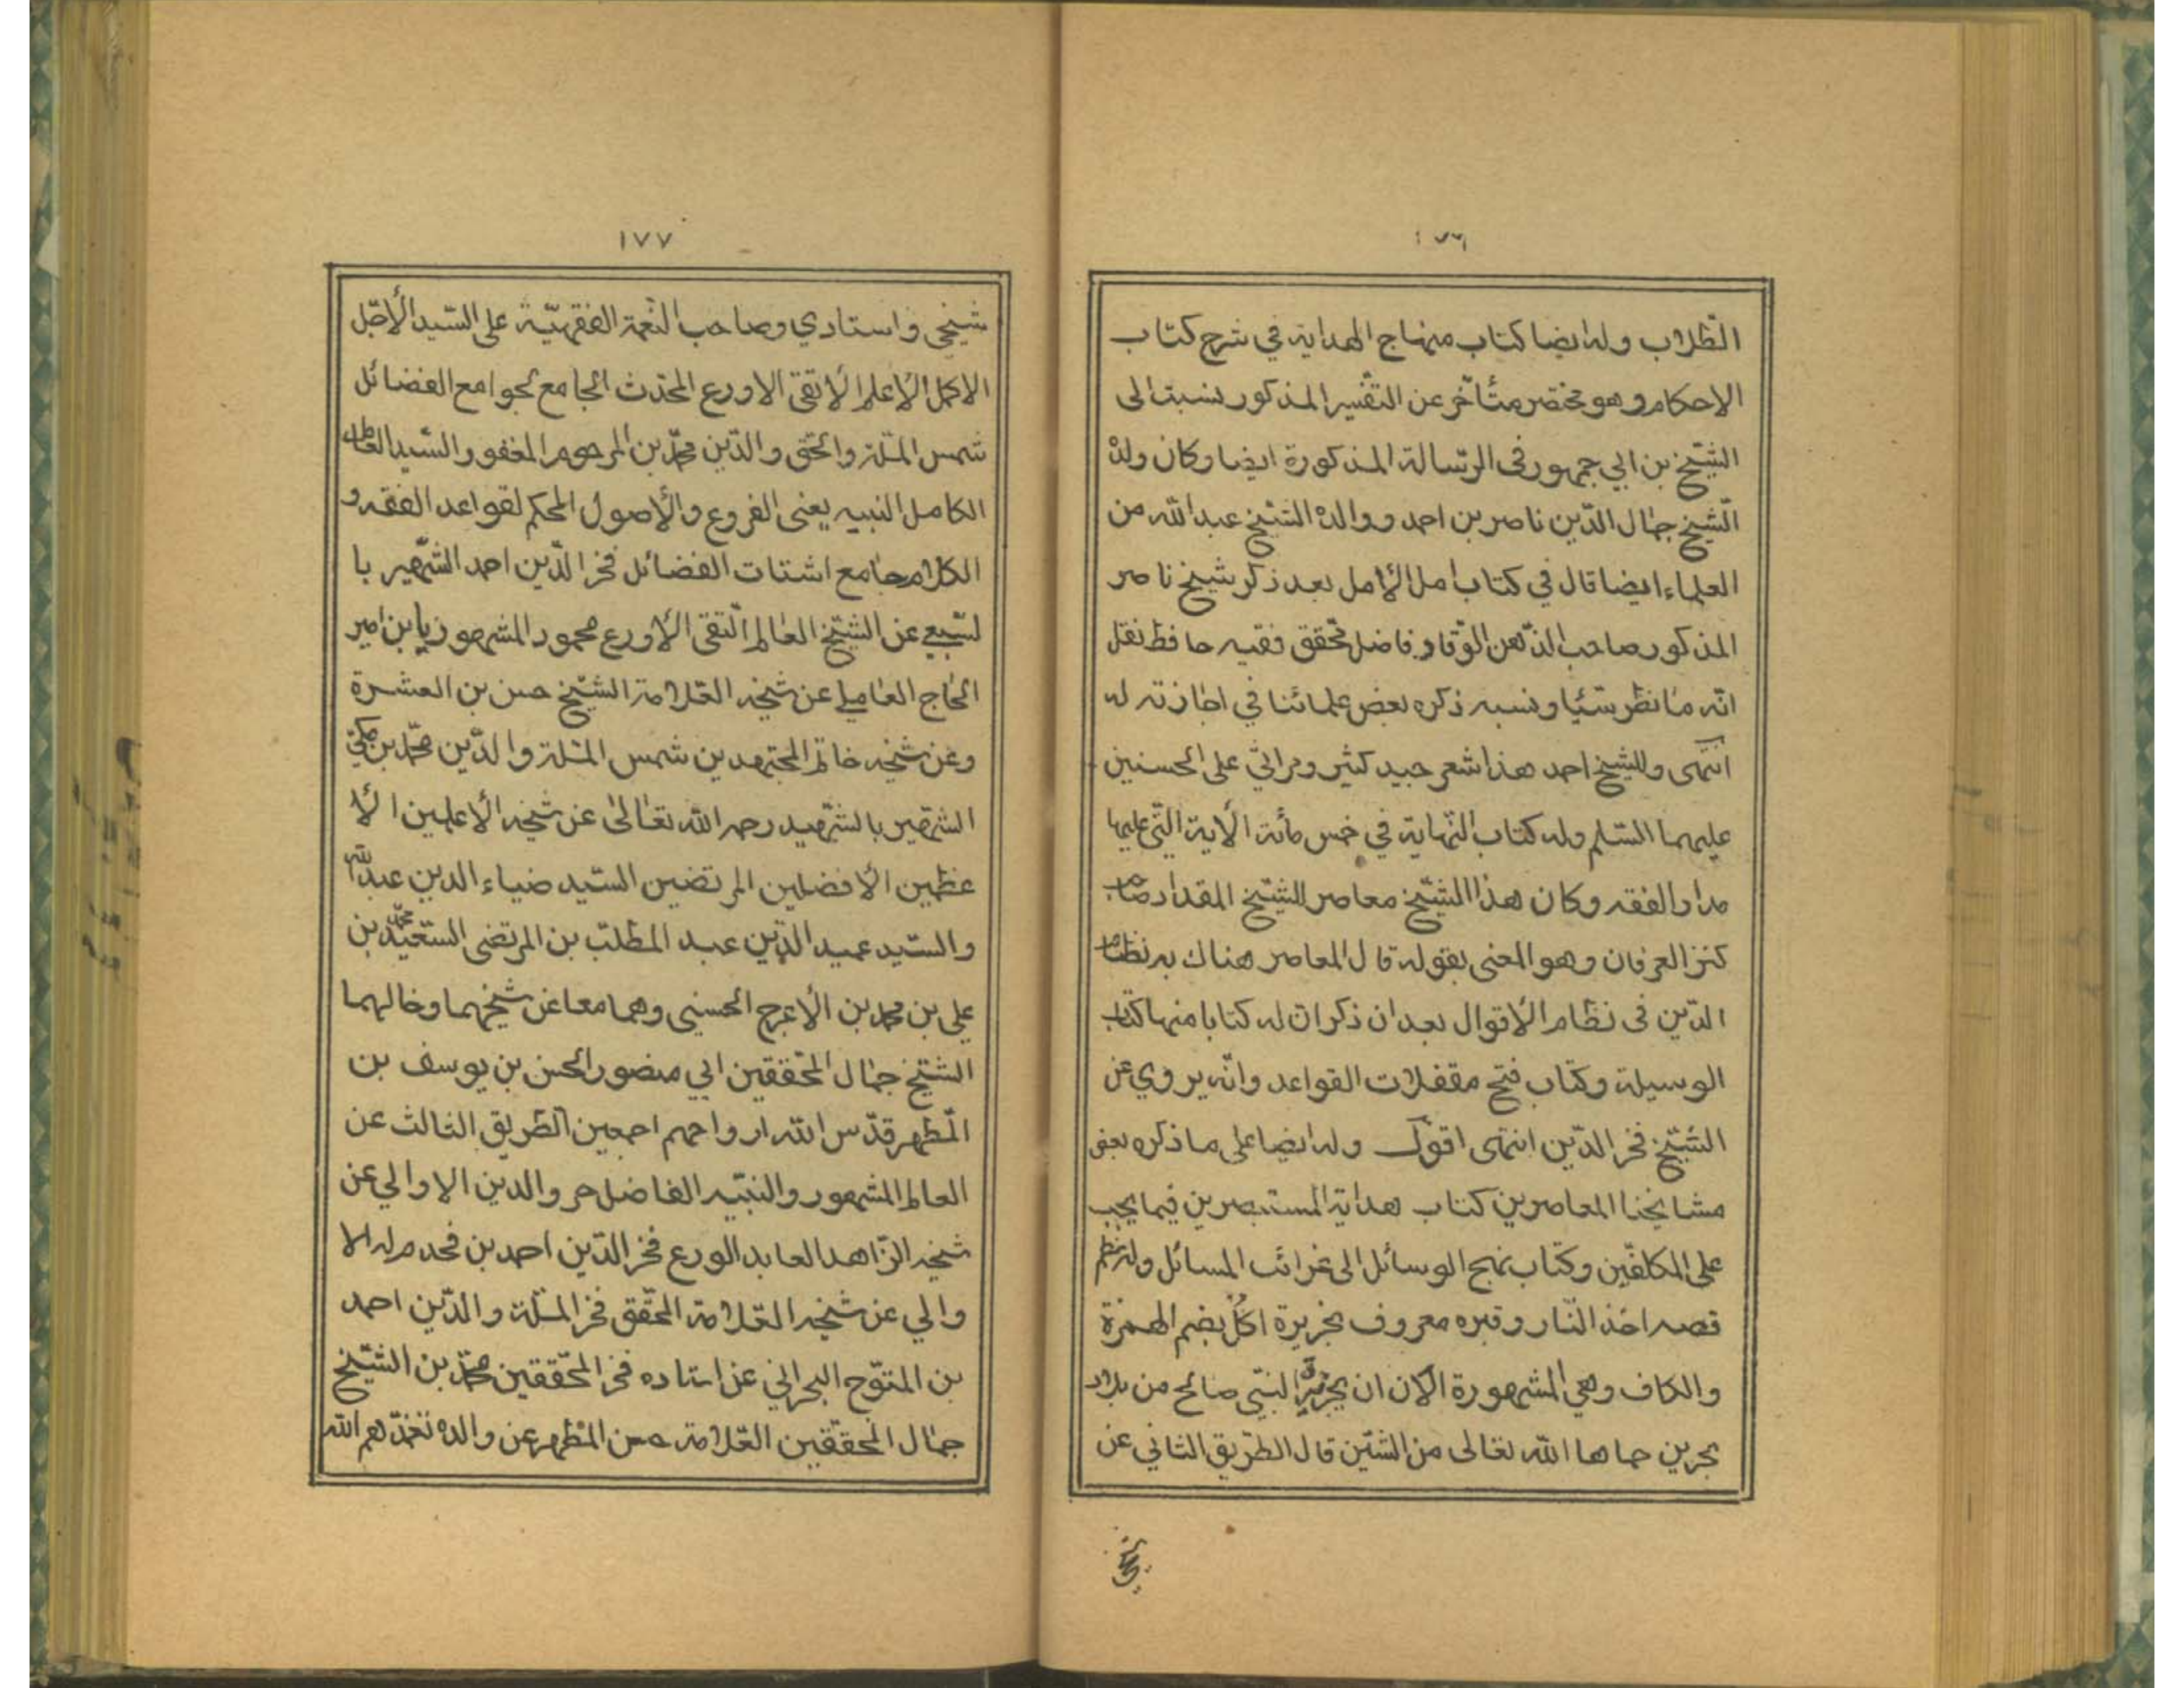 ١٧٦
الطّلاب وله ايضا كتاب منهاج الهداية في شرح كتاب
الاحكام وهو مختصر متأخّر عن التفسير المذكور نسبت الى
الشّيخ بن ابي جمهور فى الرّسالة المذكورة ايضا وكان ولدهْ
الّشيخ جمال الدّين ناصر بن احمد ووالده الشيخ عبد الله من
العلماء ايضا قال في كتاب امل الأمل بعد ذكر شيخ ناصر
المذكور صاحب الذّهن الوّقاد فاضل محقق فقيه حافظ نقل
انّه ما نظر شيئا ونسيه ذكره بعض علمائنا في اجازته له
انتهى وللشيخ احمد هذا شعر جيد كثير ومراثي على الحسنين
عليهما السّلم وله كتاب النّهاية في خمس مأئة الأية التّي عليها
مدار الفقه وكان هذا الشّيخ معاصر للشّيخ المقداد صاحب
كنز العرفان وهو المعنى بقوله قال المعاصر هناك به نظام
الدّين فى نظام الأقوال بعد ان ذكر ان له كتابا منها كتاب
الوسيلة وكتاب فتح مقفلات القواعد وانّه يروي عن
الشّيخ فخر الدّين انتهى اقول وله ايضا على ما ذكره بعض
مشايخنا المعاصرين كتاب هداية المستبصرين فيما يجب
على المكلفّين وكتاب نهج الوسائل الى غرائب المسائل وله نظم
قصه اخذ النّار وقبره معروف بجزيرة اكُلُ بضم الهمزة
والكاف وهي المشهورة الأن ان بجزيرة النّبي صالح من بلاد
بحرين حماها الله تعالى من الشّين قال الطّريق الثاني عن
شيخي
١٧٧
شيخي واستادي وصاحب النّعمة الفقهيّة على السّيد الأجّل
الاكمل الأعلم الأتقى الاورع المحّدث الجامع لجوامع الفضائل
شمس الملّة والحق والدّين محّمد بن المرحوم المغفور السّيد العالم
الكامل النبيه يعنى الفروع والأصول المحكم لقواعد الفقه و
الكلام جامع اشتات الفضائل فخر الدّين احمد الشّهير با
لسّبعي عن الشّيخ العالم التقى الأورع محمود المشهور بابن امير
الحاج العاملي عن شيخه العّلامة الشّيخ حسن بن العشرة
وعن شيخه خاتم المجتهدين شمس الملّة والدّين محّمد بن مكي
الشّهير بالشّهيد رحمه الله تعالى عن شيخه الأعلمين الأ
عظمين الأفضلين المرتضين السّيد ضياء الدين عبد الله
والسّيد عميد الدّين عبد المطلّب بن المرتضى السّعيد محمّد بن
علي بن محمد بن الأعرج الحسيني وهما معا عن شيخهما وخالهما
الشّيخ جمال المحّققين ابي منصور الحسن بن يوسف بن
المّطهر قدّس الله ارواحهم اجمعين الطّريق الثالث عن
العالم المشهور والنبيّه الفاضل حر والدين الاوالي عن
شيخه الزّاهد العابد الورع فخر الدّين احمد بن فحدم له الا
والي عن شيخه العّلامة المحّقق فخر الملّة والدّين احمد
بن المتوّج البحراني عن استاده فخر المحّققين محّمد بن الشّيخ
جمال المحقّقين العّلامة حسن المطّهر عن والده تغمّدهم الله